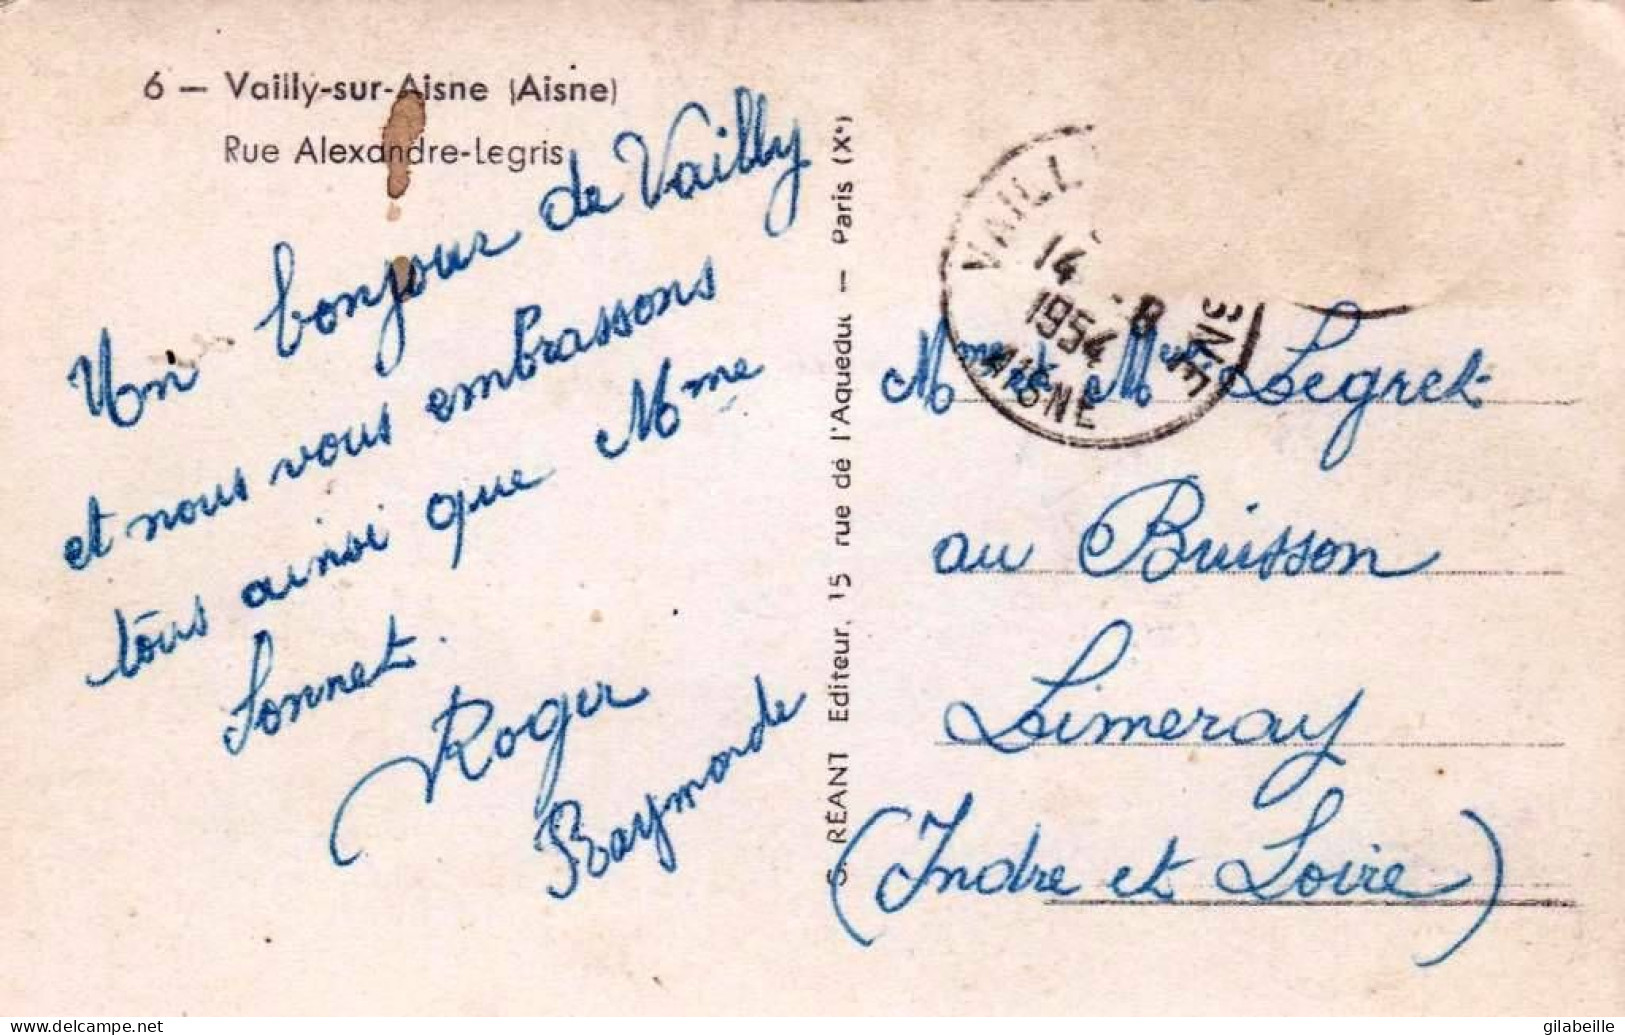 6 — Vailly-sur-Aisne (Aisne)
Rue Alexandre-Legris
Un bonjour de Vailly
et nous vous embrassons
tous ainsi que Mme
Sonnet.
Roger
Raymonde
S. RÉANT Editeur, 15 rue de l'Aqueduc — Paris (Xe)
VAILL
14 - 8
1954
AISNE
Legret
au Buisson
Limeray
(Indre et Loire)
www.delcampe.net
gilabeille